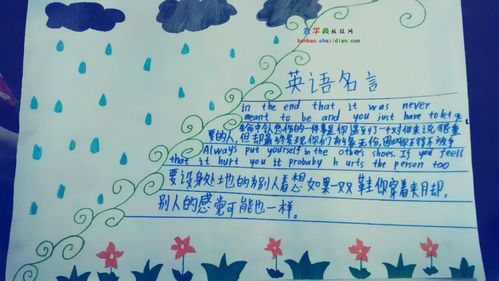 查字典板报网
banbao.chazidian.com
英语名言
in the end that it was never
meant to be and you just have to let
生命中令人悲伤的一件事是你遇到了一个对你来说很重
要的人,但却最终发现你们有缘无份,因此你不得不放手
Always put yourself in the others shoes. If you feell
that it hurt you it probably hurts the person too
要设身处地的为别人着想如果一双鞋你穿着夹月却,
别人的感觉可能也一样。